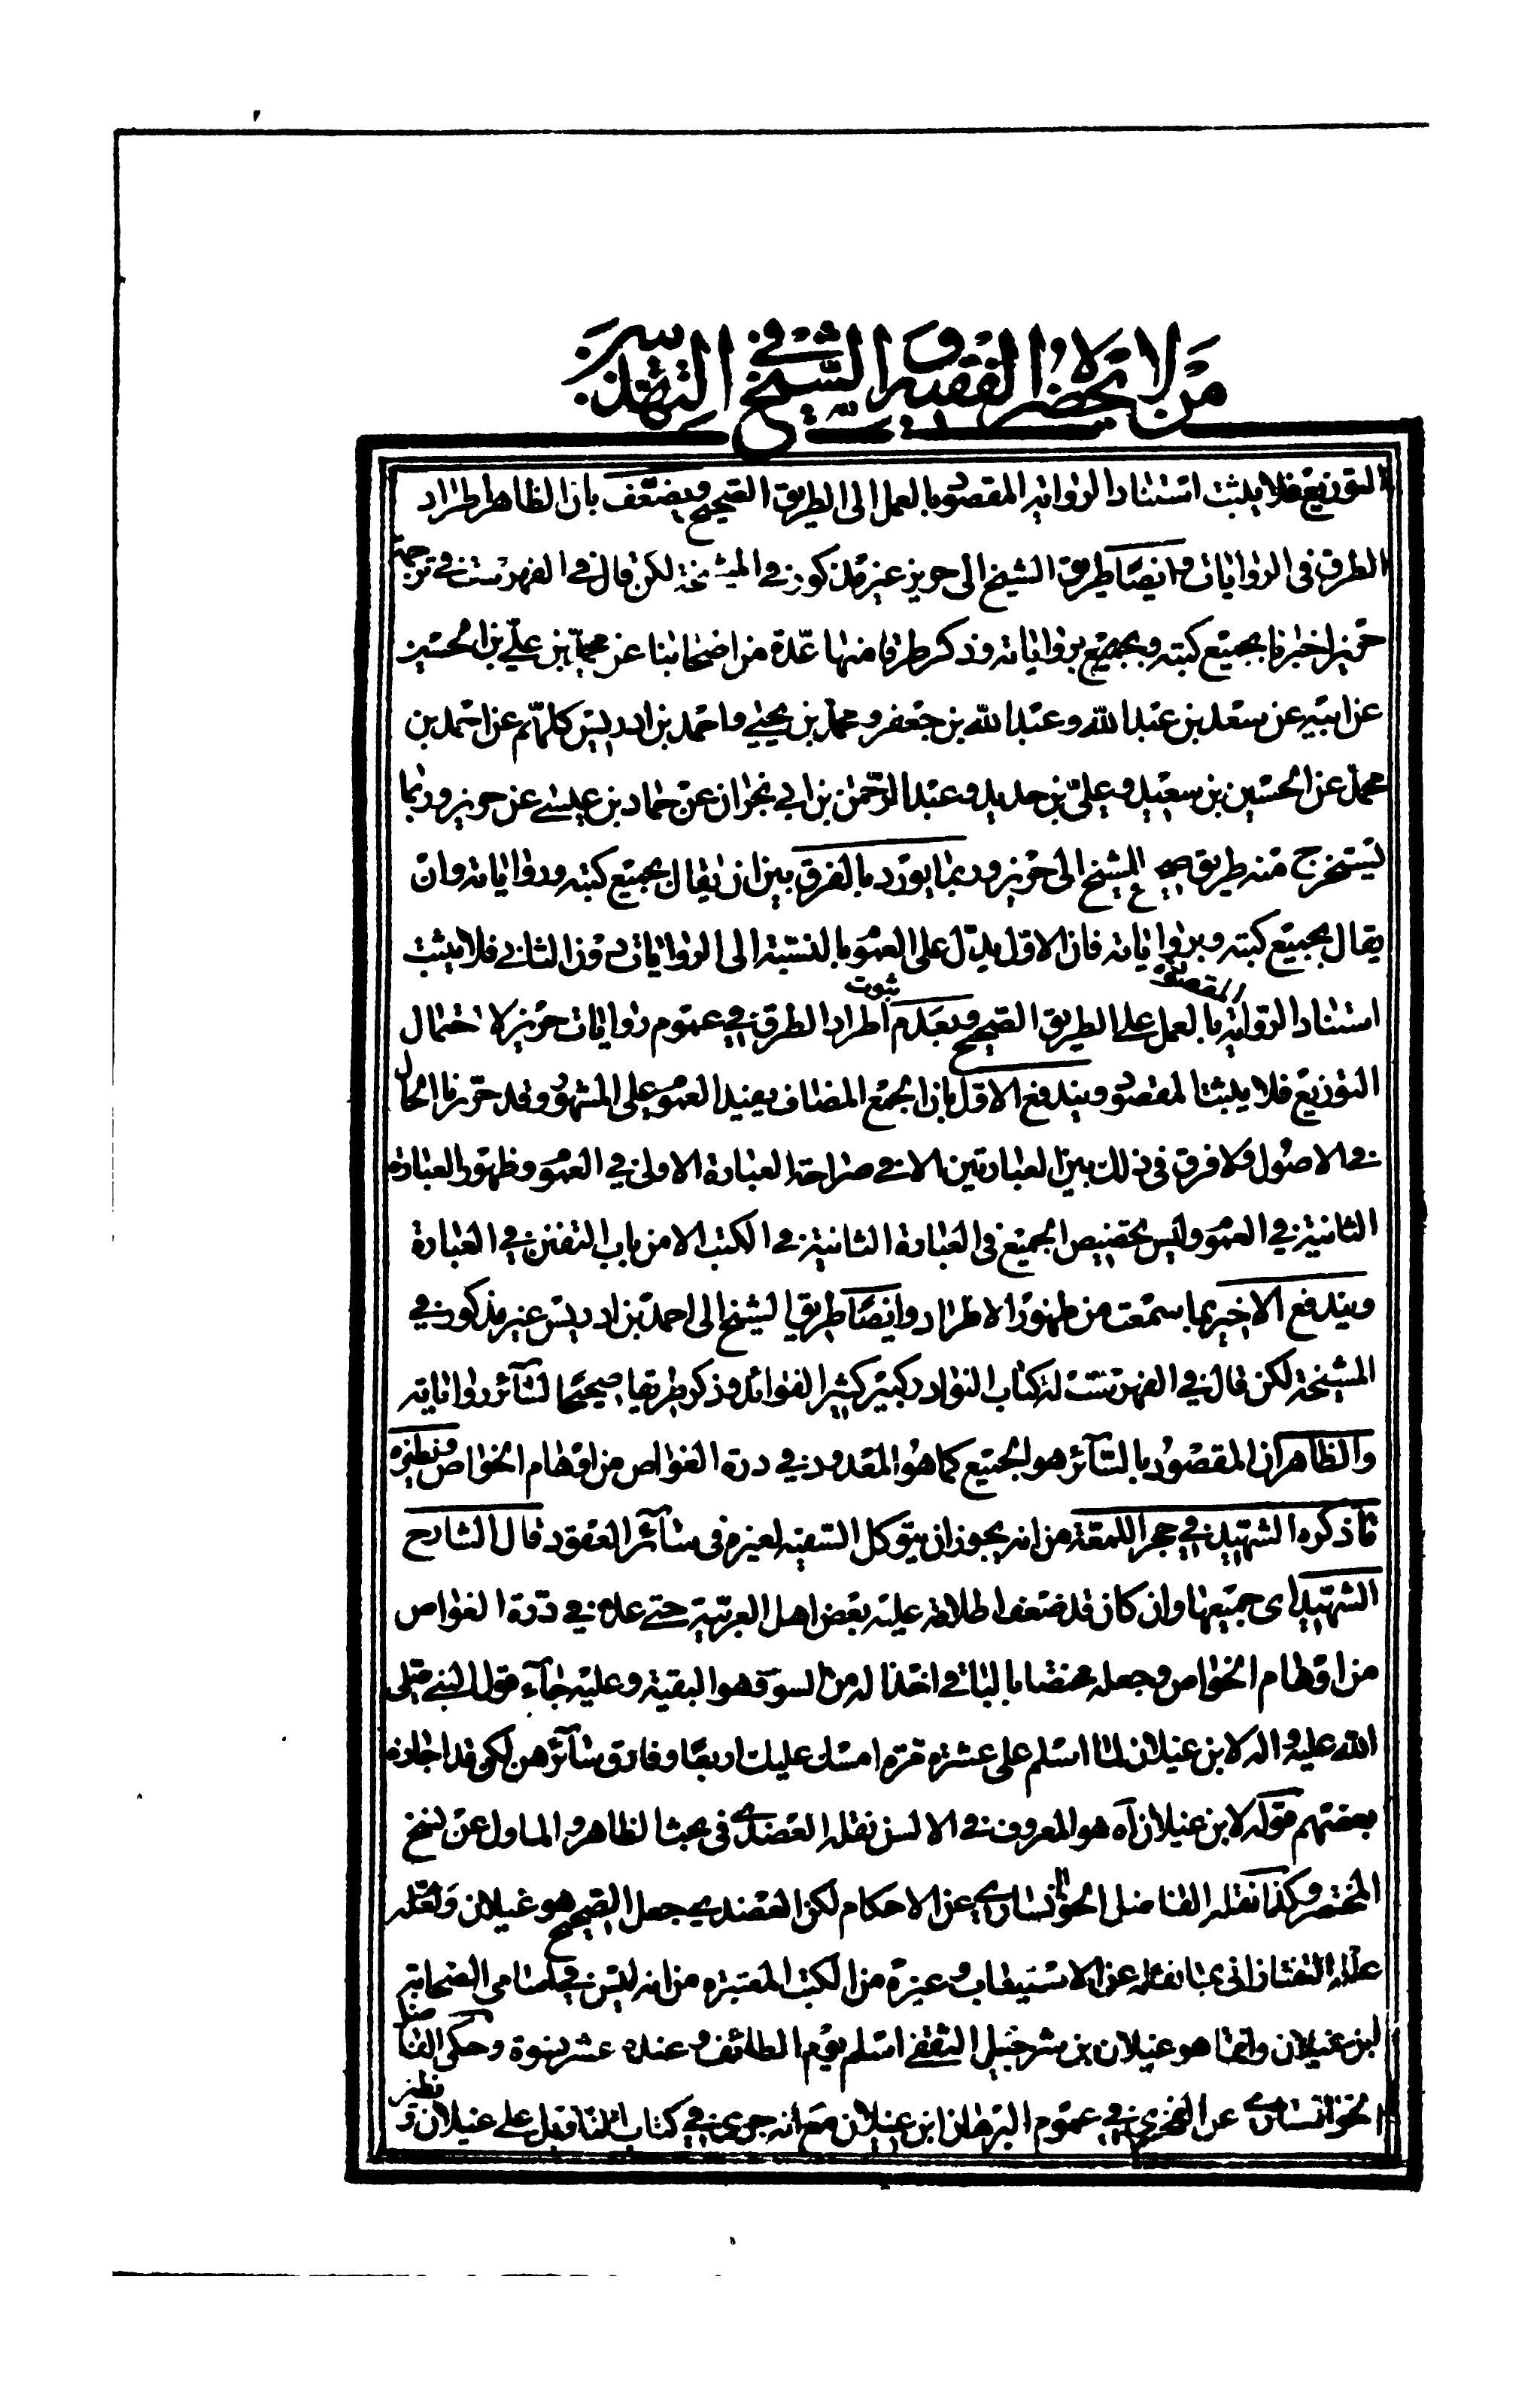 من لا يحضره الفقيه و الشيخ في التهذيبين
التوزيع فلا يثبت استناد الرواية المقصود بالعمل الى الطريق الصحيح ويضعّف بان الظاهر اطراد
الطرق فى الروايات وايضا طريق الشيخ الى حريز غير مذكور في المشيخة لكن قال في الفهرست في ترجمة
حريز اخبرنا بجميع كتبه وبجميع رواياته وذكر طرقا منها عدّة من اصحابنا عن محمّد بن علي بن الحسين
عن ابيه عن سعد بن عبد الله وعبد الله بن جعفر ومحمد بن يحيى واحمد بن ادريس كلّهم عن احمد بن
محمد عن الحسين بن سعيد وعليّ بن حديد وعبد الرّحمن بن ابي نجران عن حماد بن عيسى عن حريز وربما
يستخرج منه طريق صحيح للشيخ الى حريز وربما يورد بالفرق بين ان يقال بجميع كتبه ورواياته وان
يقال بجميع كتبه وبرواياته فان الاول يدلّ على العموم بالنسبة الى الروايات دون الثاني فلا يثبت
استناد الرواية المقصود بالعمل على الطريق الصحيح وبعدم ثبوت اطراد الطرق في عموم روايات حريز لاحتمال
التوزيع فلا يثبت المقصود ويندفع الاول بان الجمع المضاف يفيد العموم على المشهور وقد حرّرنا الحال
في الاصول ولا فرق فى ذلك بين العبارتين الا في صراحة العبارة الاولى في العموم وظهور العبارة
الثانية في العموم وليس تخصيص الجميع فى العبارة الثانية في الكتب الا من باب التفنن في العبارة
ويندفع الاخير بما سمعت من ظهور الاطراد وايضا طريق الشيخ الى احمد بن ادريس غير مذكور في
المشيخة لكن قال في الفهرست له كتاب النوادر كبير كثير الفوائد وذكر طريقا صحيحا لسآئر رواياته
والظاهر ان المقصود بالسّآئر هو الجميع كما هو المعدود في درة الغواص من اوهام الخواص ونظيره
ما ذكره الشهيد في حجر اللمعة من انه يجوز ان يتوكل السّفيه لغيره فى سآئر العقود قال الشارح
الشهيد اى جميعها وان كان قد ضعف اطلاقه عليه بعض اهل العربيّة حتى عدّه في درّة الغواص
من اوهام الخواص وجعله مختصا بالباقي اخذا له من السور وهو البقية وعليه جآء قول النبي صلى
الله عليه واله لابن غيلان لما اسلم على عشرة امسك عليك اربعا وفارق سآئرهن لكن قد اجازه
بعضهم قوله لابن غيلان آه هو المعروف في الالسن نقله العضدي فى بحث الظاهر والماول عن نسخ
المختصر وكذا نقله الفاضل الخوانساري عن الاحكام لكن العضدي جعل الصحيح هو غيلان ولعلّه
علله التفتازانى بما نقله عن الاستيعاب وغيره من الكتب المعتبرة من انه ليس في اسامي الصّحابة
ابن غيلان وانما هو غيلان بن شرحبيل الثقفي اسلم يوم الطائف وعنده عشر نسوة وحكى الفاضل
الخوانساري عن الفخري في عموم البرهان ابن غيلان مع انه جرى في كتاب التاويل على غيلان ونظير